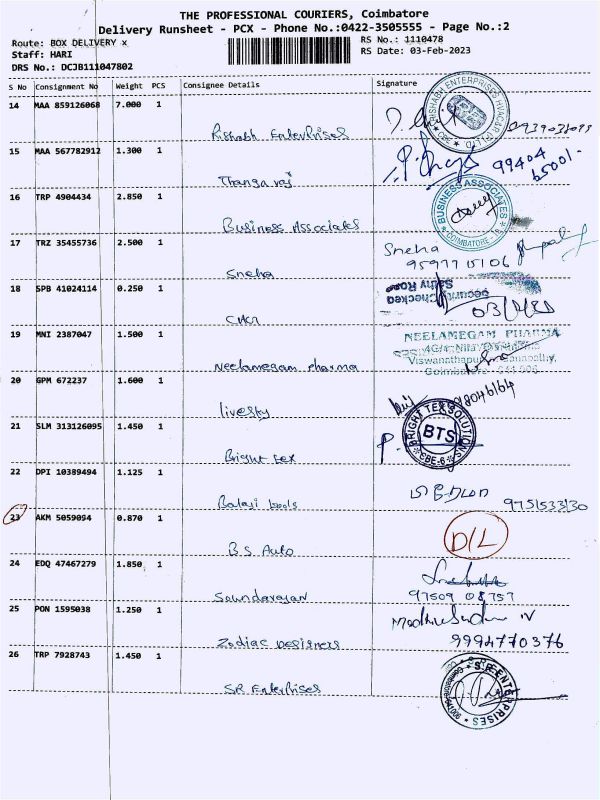 THE PROFESSIONAL COURIERS, Coimbatore
Delivery Runsheet - PCX - Phone No.:0422-3505555 - Page No.:2
Route: BOX DELIVERY x RS No.: 1110478
Staff: HARI RS Date: 03-Feb-2023
DRS No.: DCJB111047802
S No Consignment No Weight PCS Consignee Details Signature
14 MAA 859126068 7.000 1
Rishabh Enterprises
RISHABH ENTERPRISES HVACAR (P) LTD
15 MAA 567782912 1.300 1
Thangaraj
99404
65001
16 TRP 4904434 2.850 1
Business Associates
BUSINESS ASSOCIATES
COIMBATORE - 18
17 TRZ 35455736 2.500 1
Sneha
Sneha
9597715106
18 SPB 41024114 0.250 1
Security Checked
Sathy Road
19 MNI 2387047 1.500 1
Neelamegam Pharma
NEELAMEGAM PHARMA
20 GPM 672237 1.600 1
21 SLM 313126095 1.450 1
Bright tex
BRIGHT TEX SOLUTIONS
BTS
CBE-6
22 DPI 10389494 1.125 1
Balaji tools
9751533130
23 AKM 5059094 0.870 1
B.S Auto
D/L
24 EDQ 47467279 1.850 1
Soundarajan
97509 08757
25 PON 1595038 1.250 1
Zodiac Designers
9994770376
26 TRP 7928743 1.450 1
SR Enterprises
S.R. ENTERPRISES